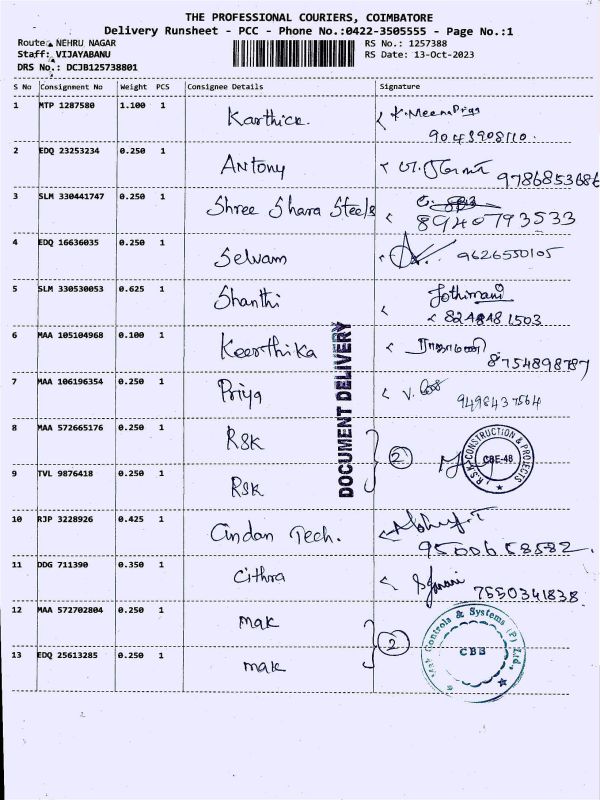 THE PROFESSIONAL COURIERS, COIMBATORE
Delivery Runsheet - PCC - Phone No.:0422-3505555 - Page No.:1
Route: NEHRU NAGAR
RS No.: 1257388
Staff: VIJAYABANU
RS Date: 13-Oct-2023
DRS No.: DCJB125738801
S No Consignment No Weight PCS Consignee Details Signature
1 MTP 1287580 1.100 1 Karthick K. Meena
9043908110.
2 EDQ 23253234 0.250 1 Antony 9786853686
3 SLM 330441747 0.250 1 Shree Shara Steels
8940793533
4 EDQ 16636035 0.250 1 Selvam 9626550105
5 SLM 330530053 0.625 1 Shanthi Jothimani
8248481503
6 MAA 105104968 0.100 1 Keerthika ராதாமணி
8754898787
7 MAA 106196354 0.250 1 Priya V. 9498437564
DOCUMENT DELIVERY
8 MAA 572665176 0.250 1 RSK
2
R.S.K. CONSTRUCTION & PROJECTS
CBE-48
9 TVL 9876418 0.250 1 RSK
10 RJP 3228926 0.425 1 Cindan Tech.
9500658582.
11 DDG 711390 0.350 1 Cithra 7550341838
12 MAA 572702804 0.250 1 mak
2
Mak Controls & Systems (P) Ltd.,
CBE
13 EDQ 25613285 0.250 1 mak